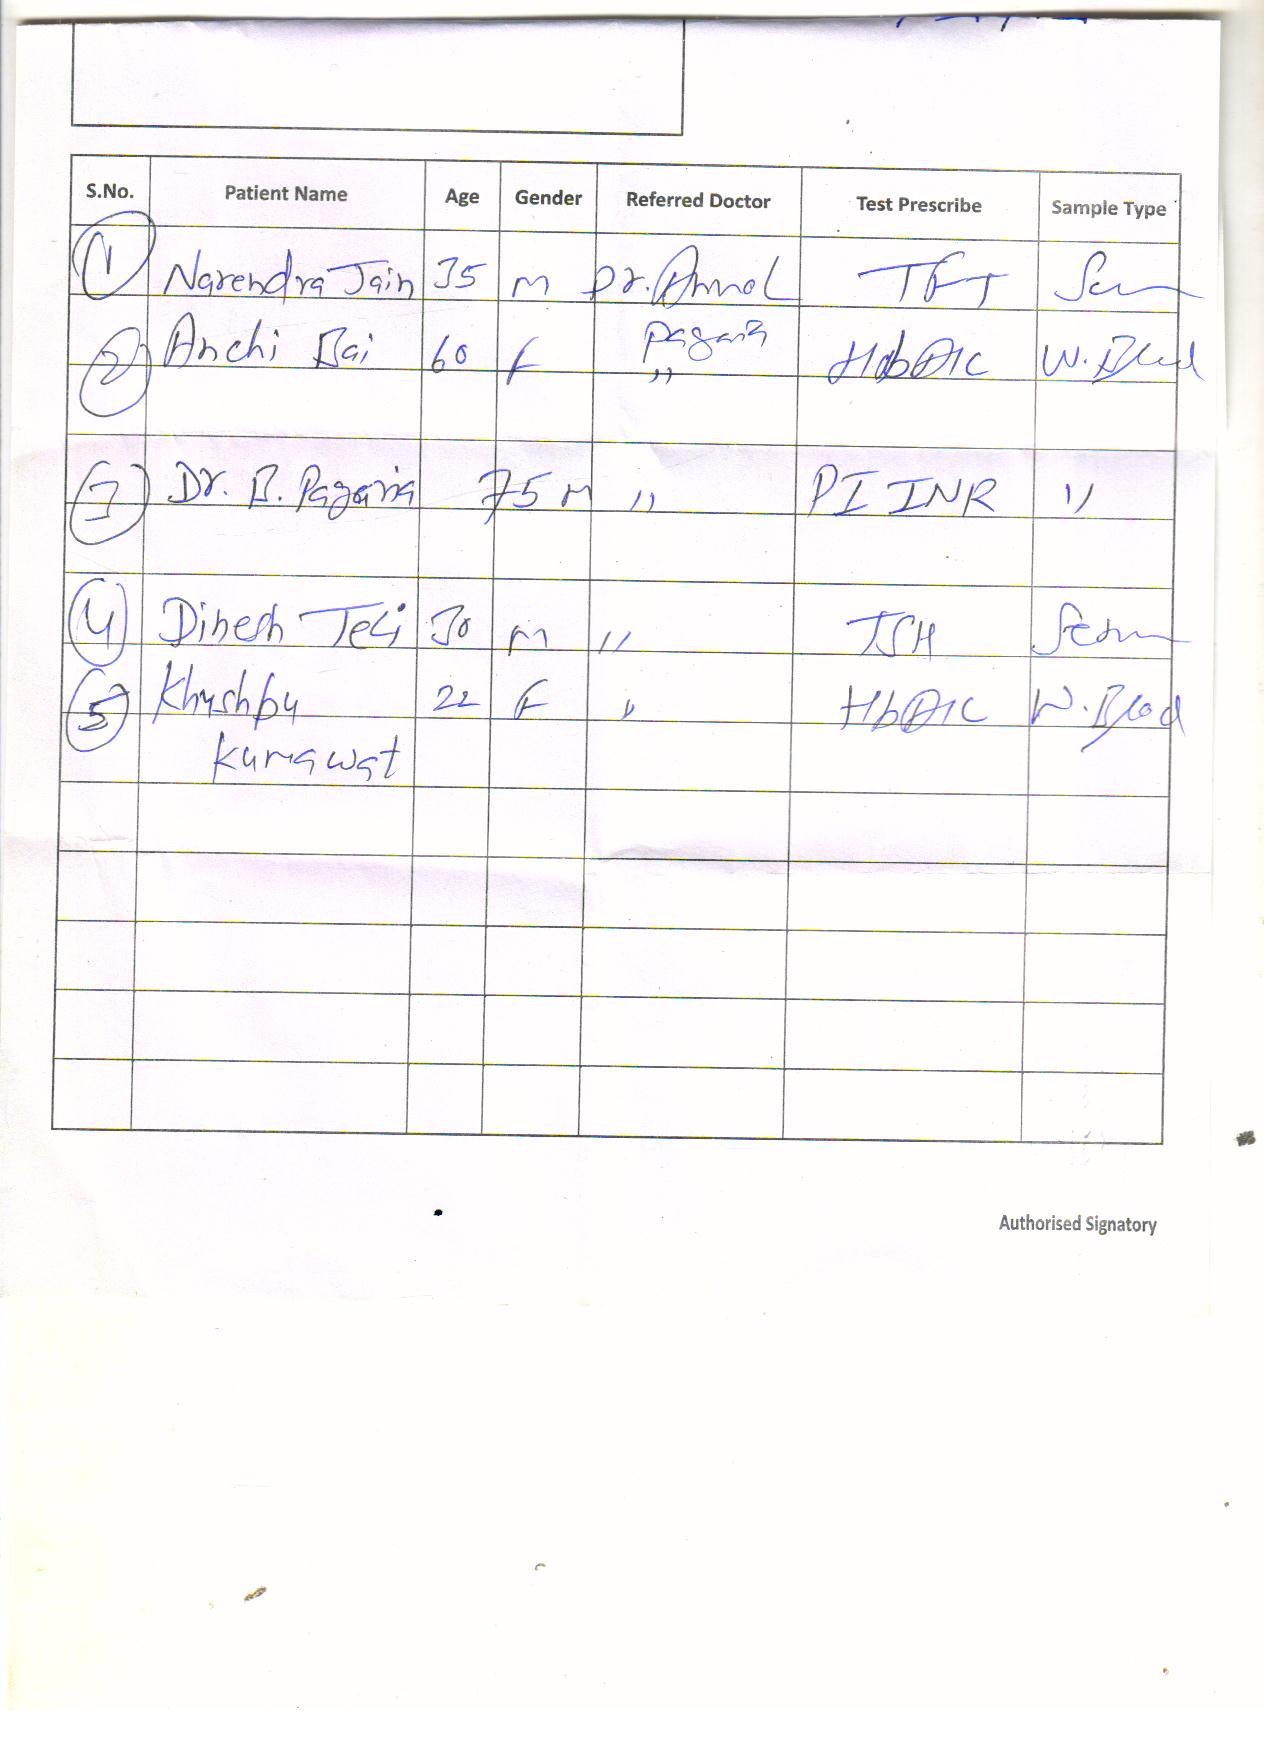 S.No. Patient Name Age Gender Referred Doctor Test Prescribe Sample Type
1 Narendra Jain 35 M Dr. Anmol TFT
Pagaria
2 Anchi Bai 60 F ,, HbA1c W. Blood
3 Dr. B. Pagaria 75 M ,, PT INR ,,
4 Dinesh Teli 30 M ,, TSH Serum
5 Khushbu 22 F ,, HbA1c W. Blood
Kumawat
Authorised Signatory